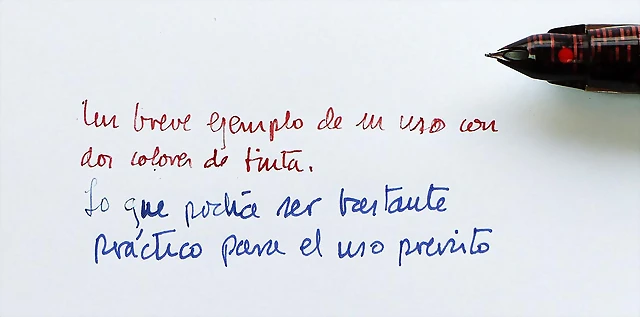 Un breve ejemplo de su uso con
dos colores de tinta.
Lo que podía ser bastante
práctico para el uso previsto